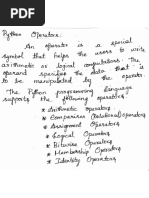 Python Operator:
An operator is a special
symbol that helps the users to write
arithmetic or logical computations. The
operand specifies the data that is
to be manipulated by the operator.
The Python programming language
supports the following operators
* Arithmetic Operators
* Comparison (Relational) Operators
* Assignment Operators
* Logical Operators
* Bitwise Operators
* Membership Operators
* Identity Operators